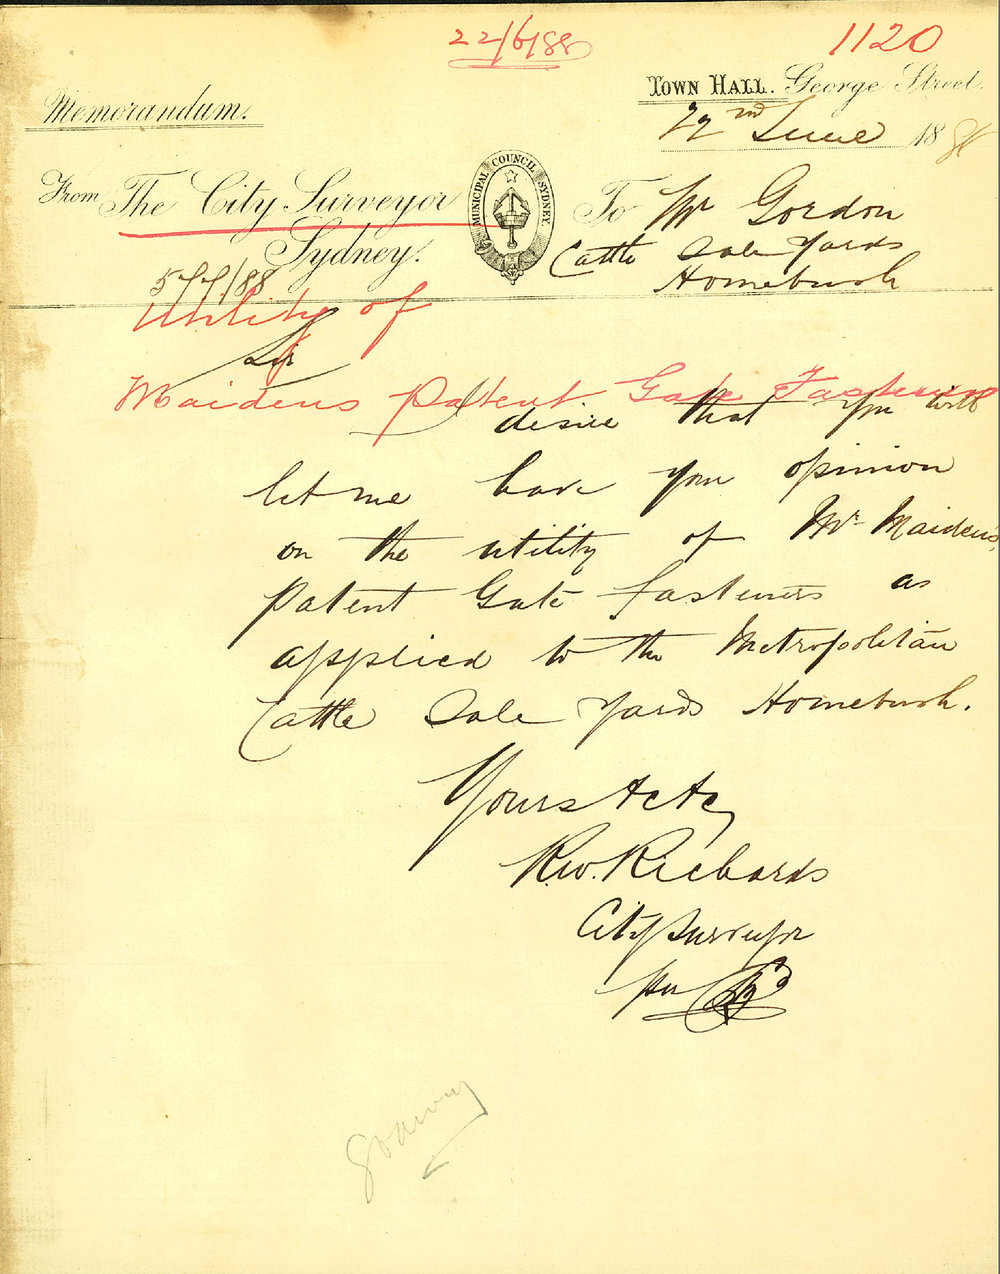 22/6/88
1120
Memorandum.
Town Hall. George Street.
22nd June 1888
From The City Surveyor
Sydney.
MUNICIPAL COUNCIL SYDNEY.
To Mr Gordon
Cattle Sale Yards
Homebush
577/88
Utility of
Maidens Patent Gate Fastening
Sir
I desire that you will
let me have your opinion
on the utility of Mr Maidens
Patent Gate fasteners as
applied to the Metropolitan
Cattle Sale Yards Homebush.
Yours &c &c
R.W. Richards
City Surveyor
per